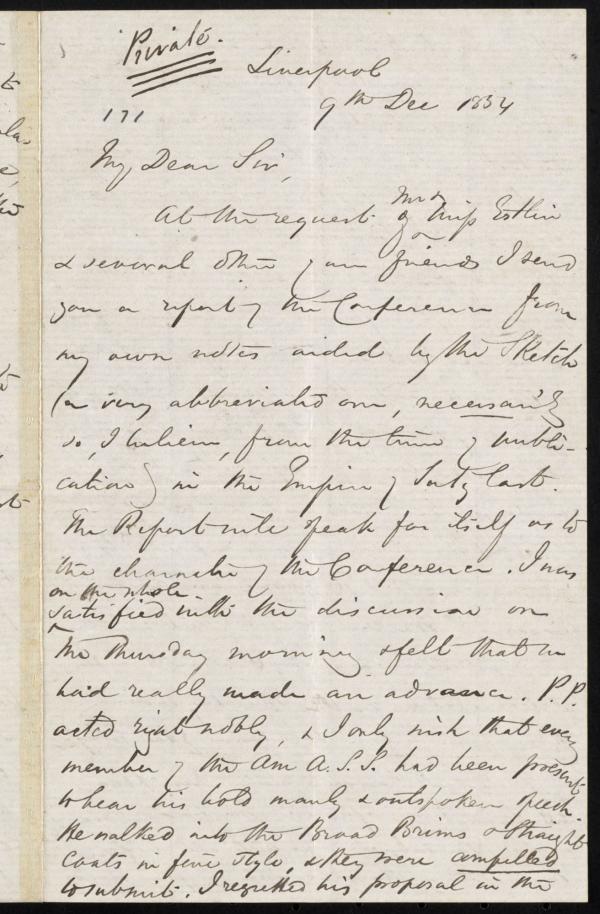 Private.
Liverpool
9th Dec 1854
171
My Dear Sir,
At the request of Mrs & Miss Estlin
& several other of our friends I send
you a report of the Conference from
my own notes aided by the Sketch
(a very abbreviated one, necessarily
so, I believe, from the time of publi-
cation) in the Empire of Saty last.
The Report will speak for itself as to
the character of the Conference. I was
on the whole
satisfied with the discussion on
the Thursday morning & felt that we
had really made an advance. P.P.
acted right nobly, & I only wish that every
member of the Am A.S.S. had been present
to hear his bold manly & outspoken speech.
He walked into the Broad Brims & Straight
Coats in fine style, & they were compelled
to submit. I regretted his proposal in the